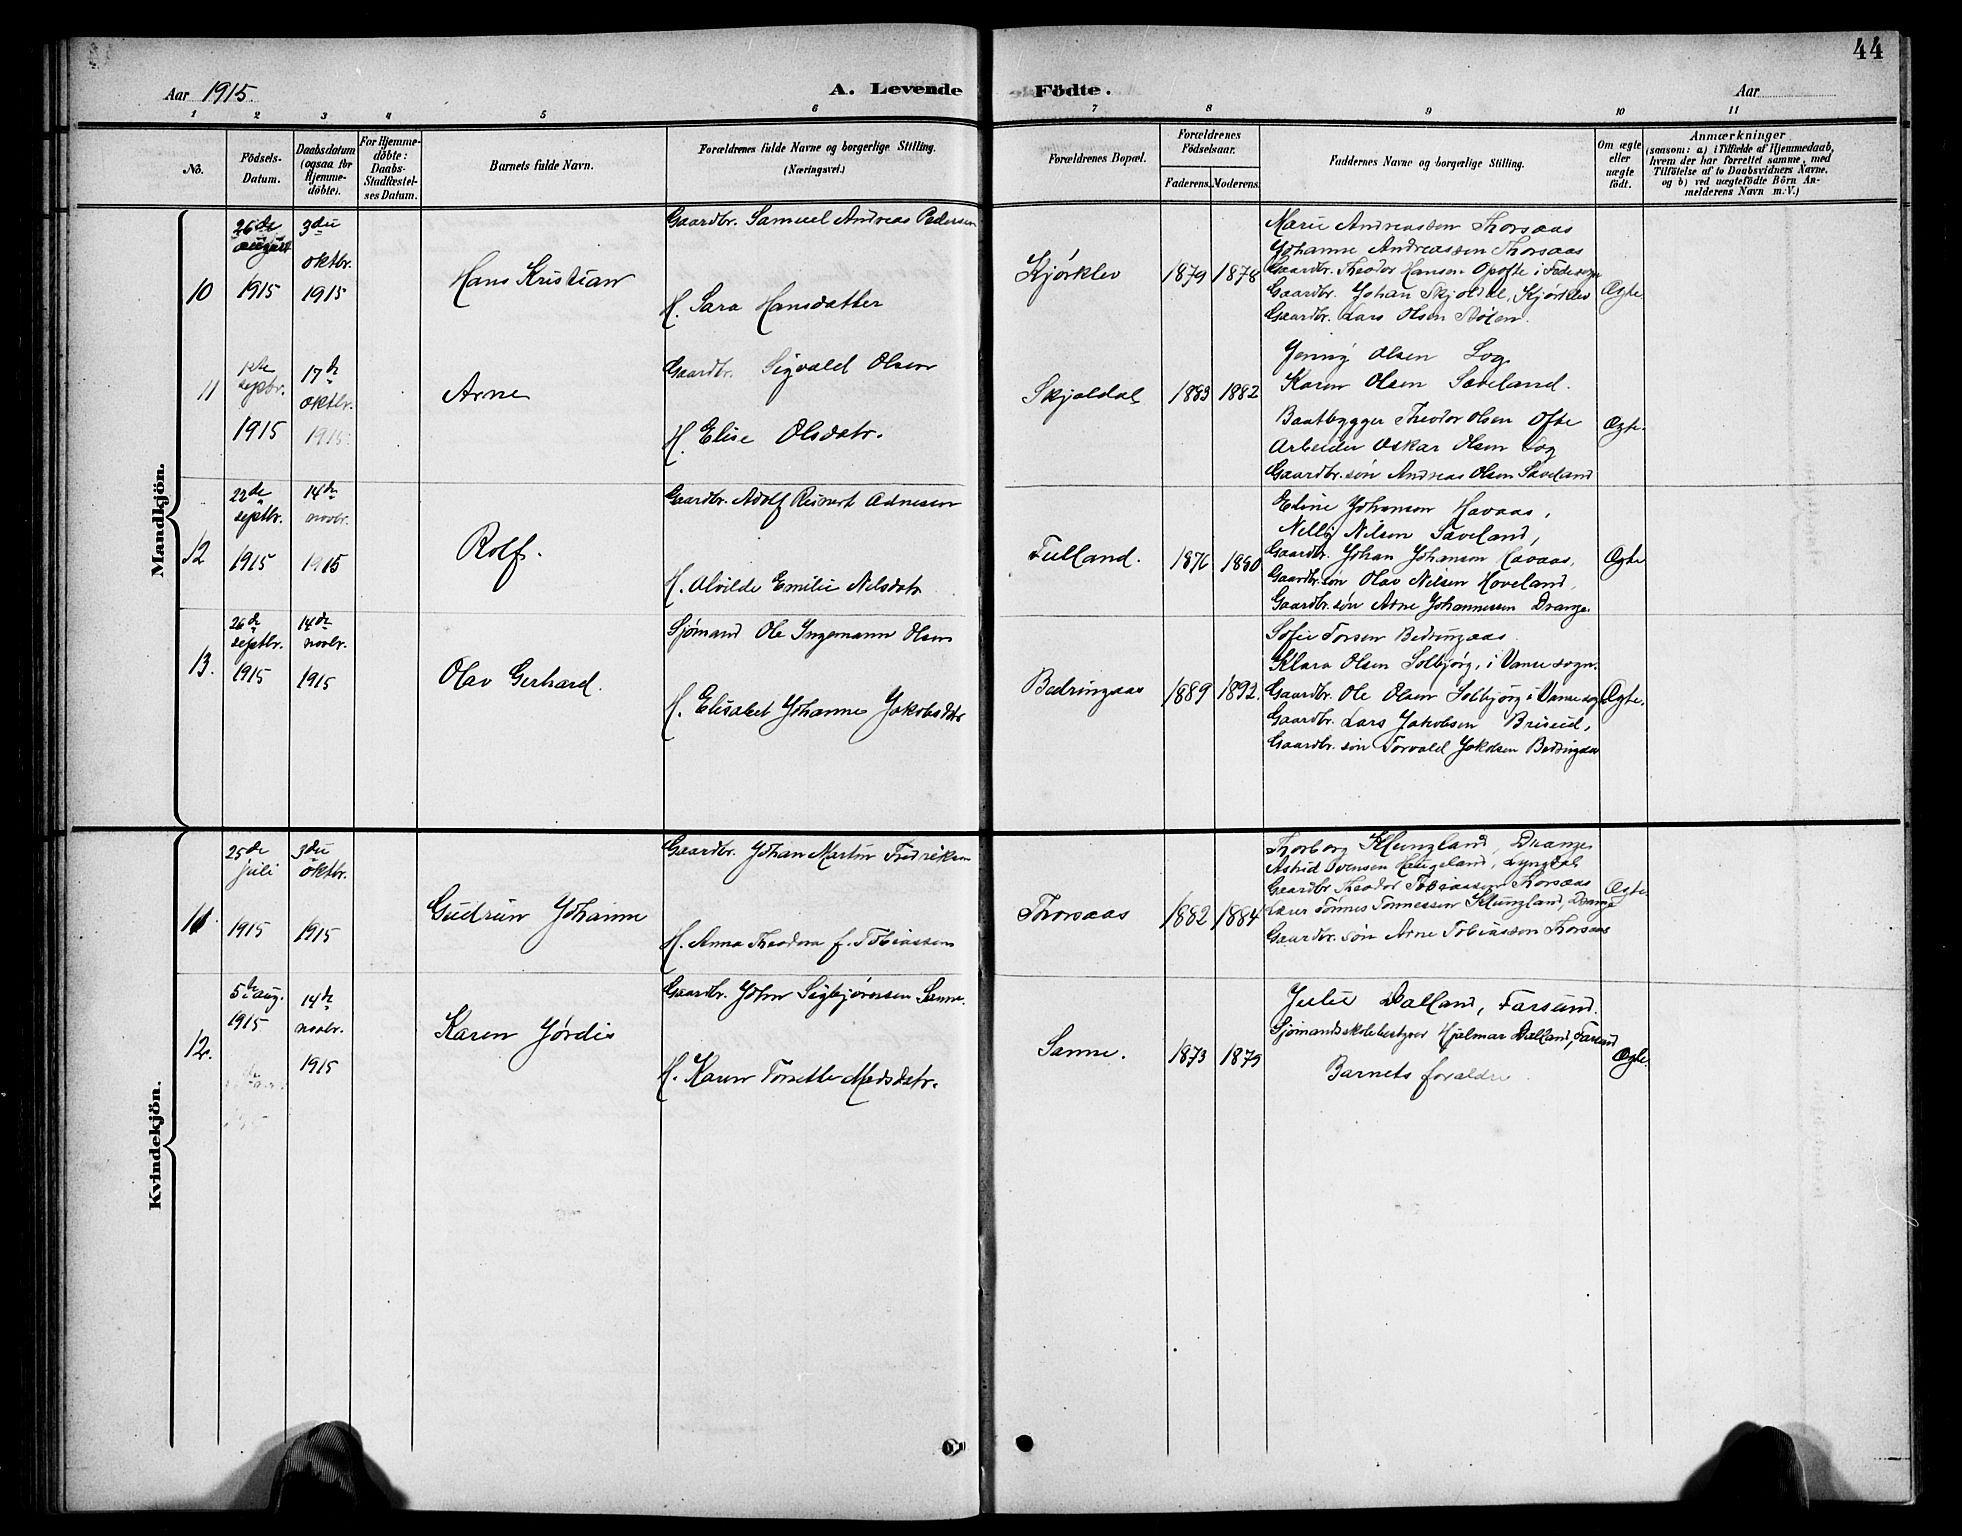 44
Aar 1915.
A. Levende Födte.
Aar
1 2 3 4 5 6 7 8 9 10 11
No.
Födsels-Datum.
Daabsdatum (ogsaa for Hjemme-döbte).
For Hjemme-döbte: Daabs-Stadfæstel-ses Datum.
Barnets fulde Navn.
Forældrenes fulde Navne og borgerlige Stilling. (Næringsvei.)
Forældrenes Bopæl.
Forældrenes Födselsaar.
Faderens. Moderens.
Faddernes Navne og borgerlige Stilling.
Om ægte eller uægte födt.
Anmærkninger
(saasom: a) i Tilfælde af Hjemmedaab,
hvem der har forrettet samme, med
Tilföielse af to Daabsvidners Navne,
og b) ved uægtefödte Börn An-
melderens Navn m.V.)
Mandkjön.
10
26de august 1915
3die oktbr. 1915
Hans Kristian
Gaardbr. Samuel Andreas Pedersen
H. Sara Hansdatter
Kjørklev
1879 1878
Marie Andreassen Thorsaas
Johanne Andreassen Thorsaas
Gaardbr. Theodor Hansen Opofte i Fedesogn
Gaardbr. Johan Skjoldal, Kjørklev
Gaardbr. Lars Olsen
Ægte.
11
septbr. 1915
17de oktbr. 1915
Arne
Gaardbr. Sigvald Olsen
H. Elise Olsdatr.
Skjoldal
1883 1882
Jenny Olsen Log
Karen Olsen Sæveland.
Baatbygger Theodor Olsen Ofte
Arbeider Oskar Olsen Log
Gaardbr. søn Andreas Olsen Sæveland
Ægte.
12
22de septbr. 1915
14de novbr. 1915
Rolf.
Gaardbr. Adolf Reinert Adnesen
H. Alvilde Emilie Nilsdatr
Tulland.
1876 1880
Edine Johansen Havaas,
Nelly Nilsen Sæveland,
Gaardbr. Johan Johansen Havaas,
Gaardbr. søn Olav Nilsen Hoveland,
Gaardbr. søn Arne Johannessen Drange.
Ægte
13.
26de septbr. 1915
14de novbr. 1915
Olav Gerhard.
Sjømand Ole Ingemann Olsen
H. Elisabet Johanne Jakobsdatr
Bedringaas
1889 1892.
Sofie Torsen Bedringaas.
Klara Olsen Solbjørg, i Vanse sogn.
Gaardbr. Ole Olsen Solbjørg i Vanse sogn
Gaardbr. Lars Jakobsen Briseid,
Gaardbr. søn Torvald Jakobsen Bedringaas
Ægte.
Kvindekjön.
11.
25de juli 1915
3die oktbr. 1915
Gudrun Johanne
Gaardbr. Johan Martin Fredriksen
H. Anna Theodora f. Tobiassen
Thorsaas
1882 1884
Thorborg Klungland, Drange
Astrid Svensen Haugeland, Lyngdal
Gaardbr Theodor Tobiassen Thorsaas
Lærer Tønnes Tønnessen Klungland, Drange
Gaardbr. søn Arne Tobiassen Thorsaas
Ægte
12.
5te aug. 1915
14de novbr. 1915
Karen Jørdis
Gaardbr. John Sigbjørnsen Sanne.
H. Karen Tørsette Madsdatr.
Sanne.
1873 1879
Julie Dalland, Farsund.
Sjømandsskolebestyrer Hjalmar Dalland, Farsund
Barnets forældre.
Ægte.